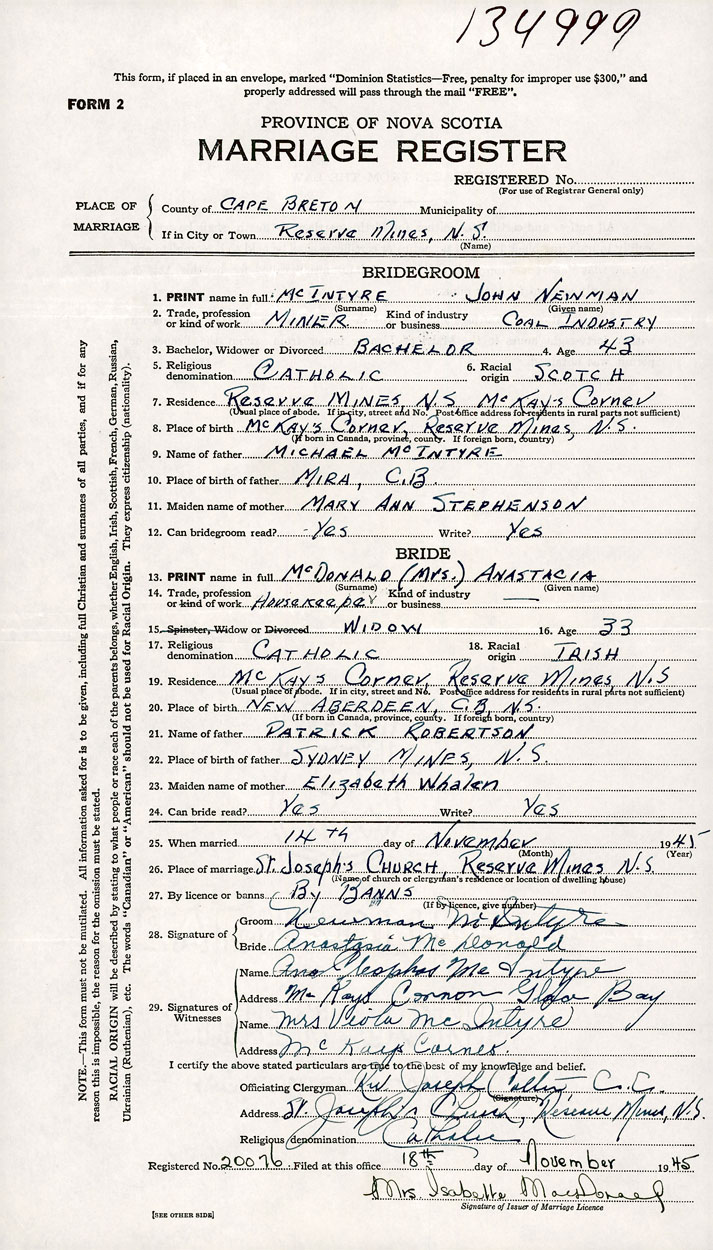 134999
This form, if placed in an envelope, marked "Dominion Statistics—Free, penalty for improper use $300," and
properly addressed will pass through the mail "FREE".
FORM 2
PROVINCE OF NOVA SCOTIA
MARRIAGE REGISTER
REGISTERED No.
(For use of Registrar General only)
PLACE OF MARRIAGE
County of CAPE BRETON Municipality of
If in City or Town Reserve Mines, N.S.
(Name)
BRIDEGROOM
1. PRINT name in full McINTYRE JOHN NEWMAN
(Surname) (Given name)
2. Trade, profession or kind of work MINER Kind of industry or business COAL INDUSTRY
3. Bachelor, Widower or Divorced BACHELOR 4. Age 43
5. Religious denomination CATHOLIC 6. Racial origin SCOTCH
7. Residence Reserve MINES, N.S McKAy's Corner
(Usual place of abode. If in city, street and No. Post office address for residents in rural parts not sufficient)
8. Place of birth McKAy's Corner, Reserve Mines, N.S.
(If born in Canada, province, county. If foreign born, country)
9. Name of father MICHAEL McINTYRE
10. Place of birth of father MIRA, C.B.
11. Maiden name of mother MARY ANN STEPHENSON
12. Can bridegroom read? Yes Write? Yes
BRIDE
13. PRINT name in full McDONALD (Mrs.) ANASTACIA
(Surname) (Given name)
14. Trade, profession or kind of work Housekeeper Kind of industry or business —
15. Spinster, Widow or Divorced WIDOW 16. Age 33
17. Religious denomination CATHOLIC 18. Racial origin IRISH
19. Residence McKAy's Corner, Reserve Mines, N.S
(Usual place of abode. If in city, street and No. Post office address for residents in rural parts not sufficient)
20. Place of birth NEW ABERDEEN, C.B, N.S.
(If born in Canada, province, county. If foreign born, country)
21. Name of father PATRICK ROBERTSON
22. Place of birth of father SYDNEY MINES, N.S.
23. Maiden name of mother Elizabeth Whalen
24. Can bride read? Yes Write? Yes
25. When married 14th day of November 1945
(Month) (Year)
26. Place of marriage St. Joseph's CHURCH, Reserve Mines N.S.
(Name of church or clergyman's residence or location of dwelling house)
27. By licence or banns By BANNS
(If by licence, give number)
28. Signature of
Groom Newman McIntyre
Bride Anastasia McDonald
29. Signatures of Witnesses
Name Cleophas McIntyre
Address McKays Glace Bay
Name Mrs Viola McIntyre
Address McKays Corner.
I certify the above stated particulars are true to the best of my knowledge and belief.
Officiating Clergyman Rev. Joseph C.C.
(Signature)
Address St. Joseph's Church, Reserve Mines, N.S.
Religious denomination Catholic
Registered No. 20076 Filed at this office 18th day of November 1945
Mrs. Isabelle MacDonald
Signature of Issuer of Marriage Licence
[SEE OTHER SIDE]
NOTE.—This form must not be mutilated. All information asked for is to be given, including full Christian and surnames of all parties, and if for any
reason this is impossible, the reason for the omission must be stated.
RACIAL ORIGIN will be described by stating to what people or race each of the parents belongs, whether English, Irish, Scottish, French, German, Russian,
Ukrainian (Ruthenian), etc. The words "Canadian" or "American" should not be used for Racial Origin. They express citizenship (nationality).